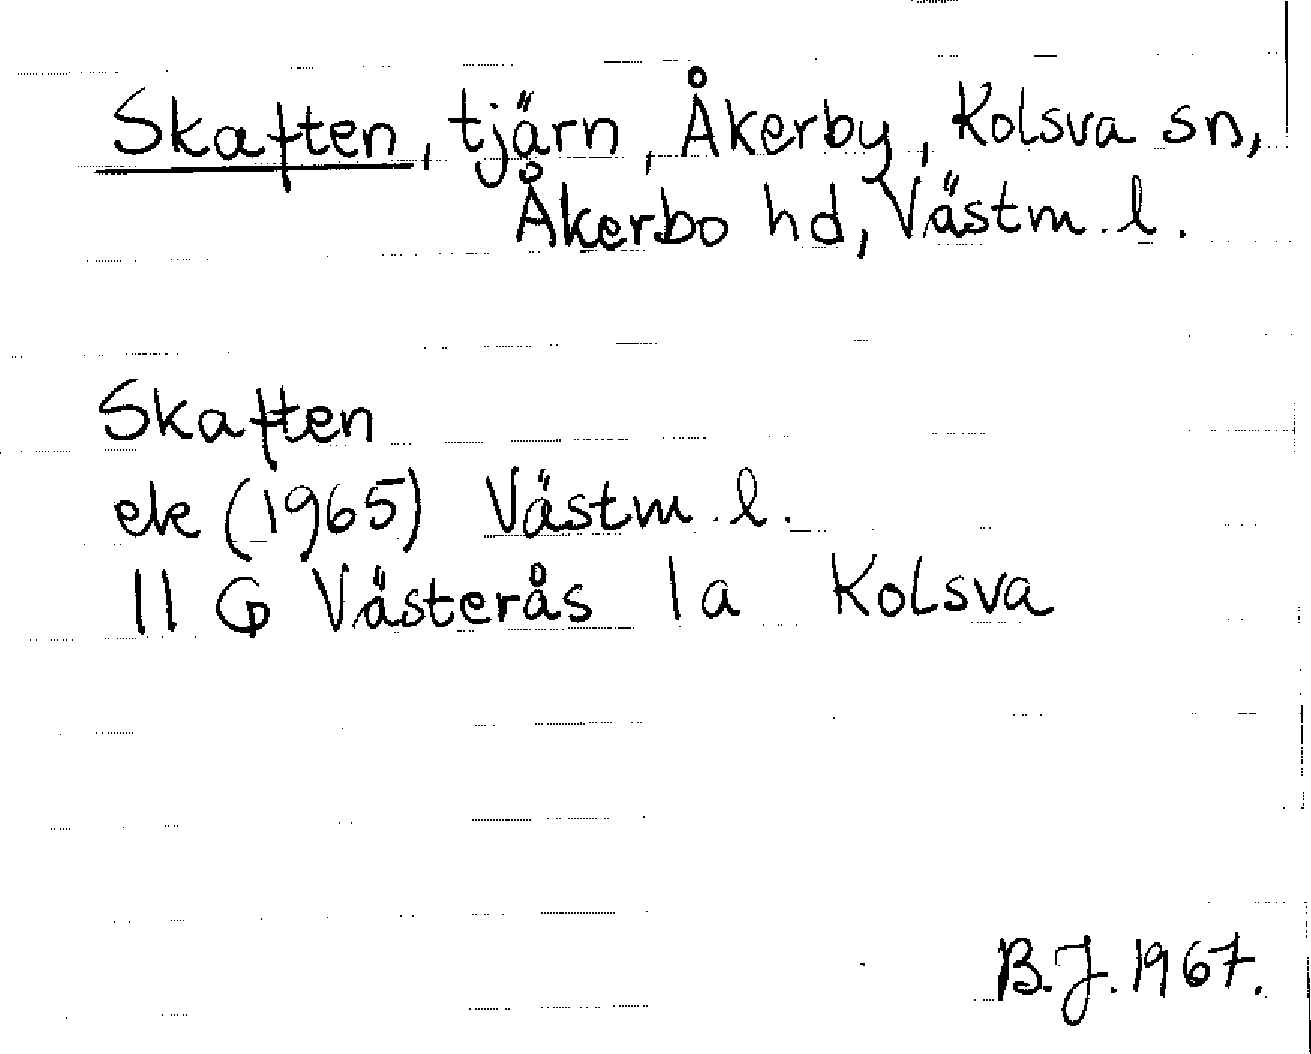 Skaften, tjärn, Åkerby, Kolsva sn,
Åkerbo hd, Västm. l.
Skaften
ek (1965) Västm. l.
11 G Västerås 1a Kolsva
B.J. 1967.